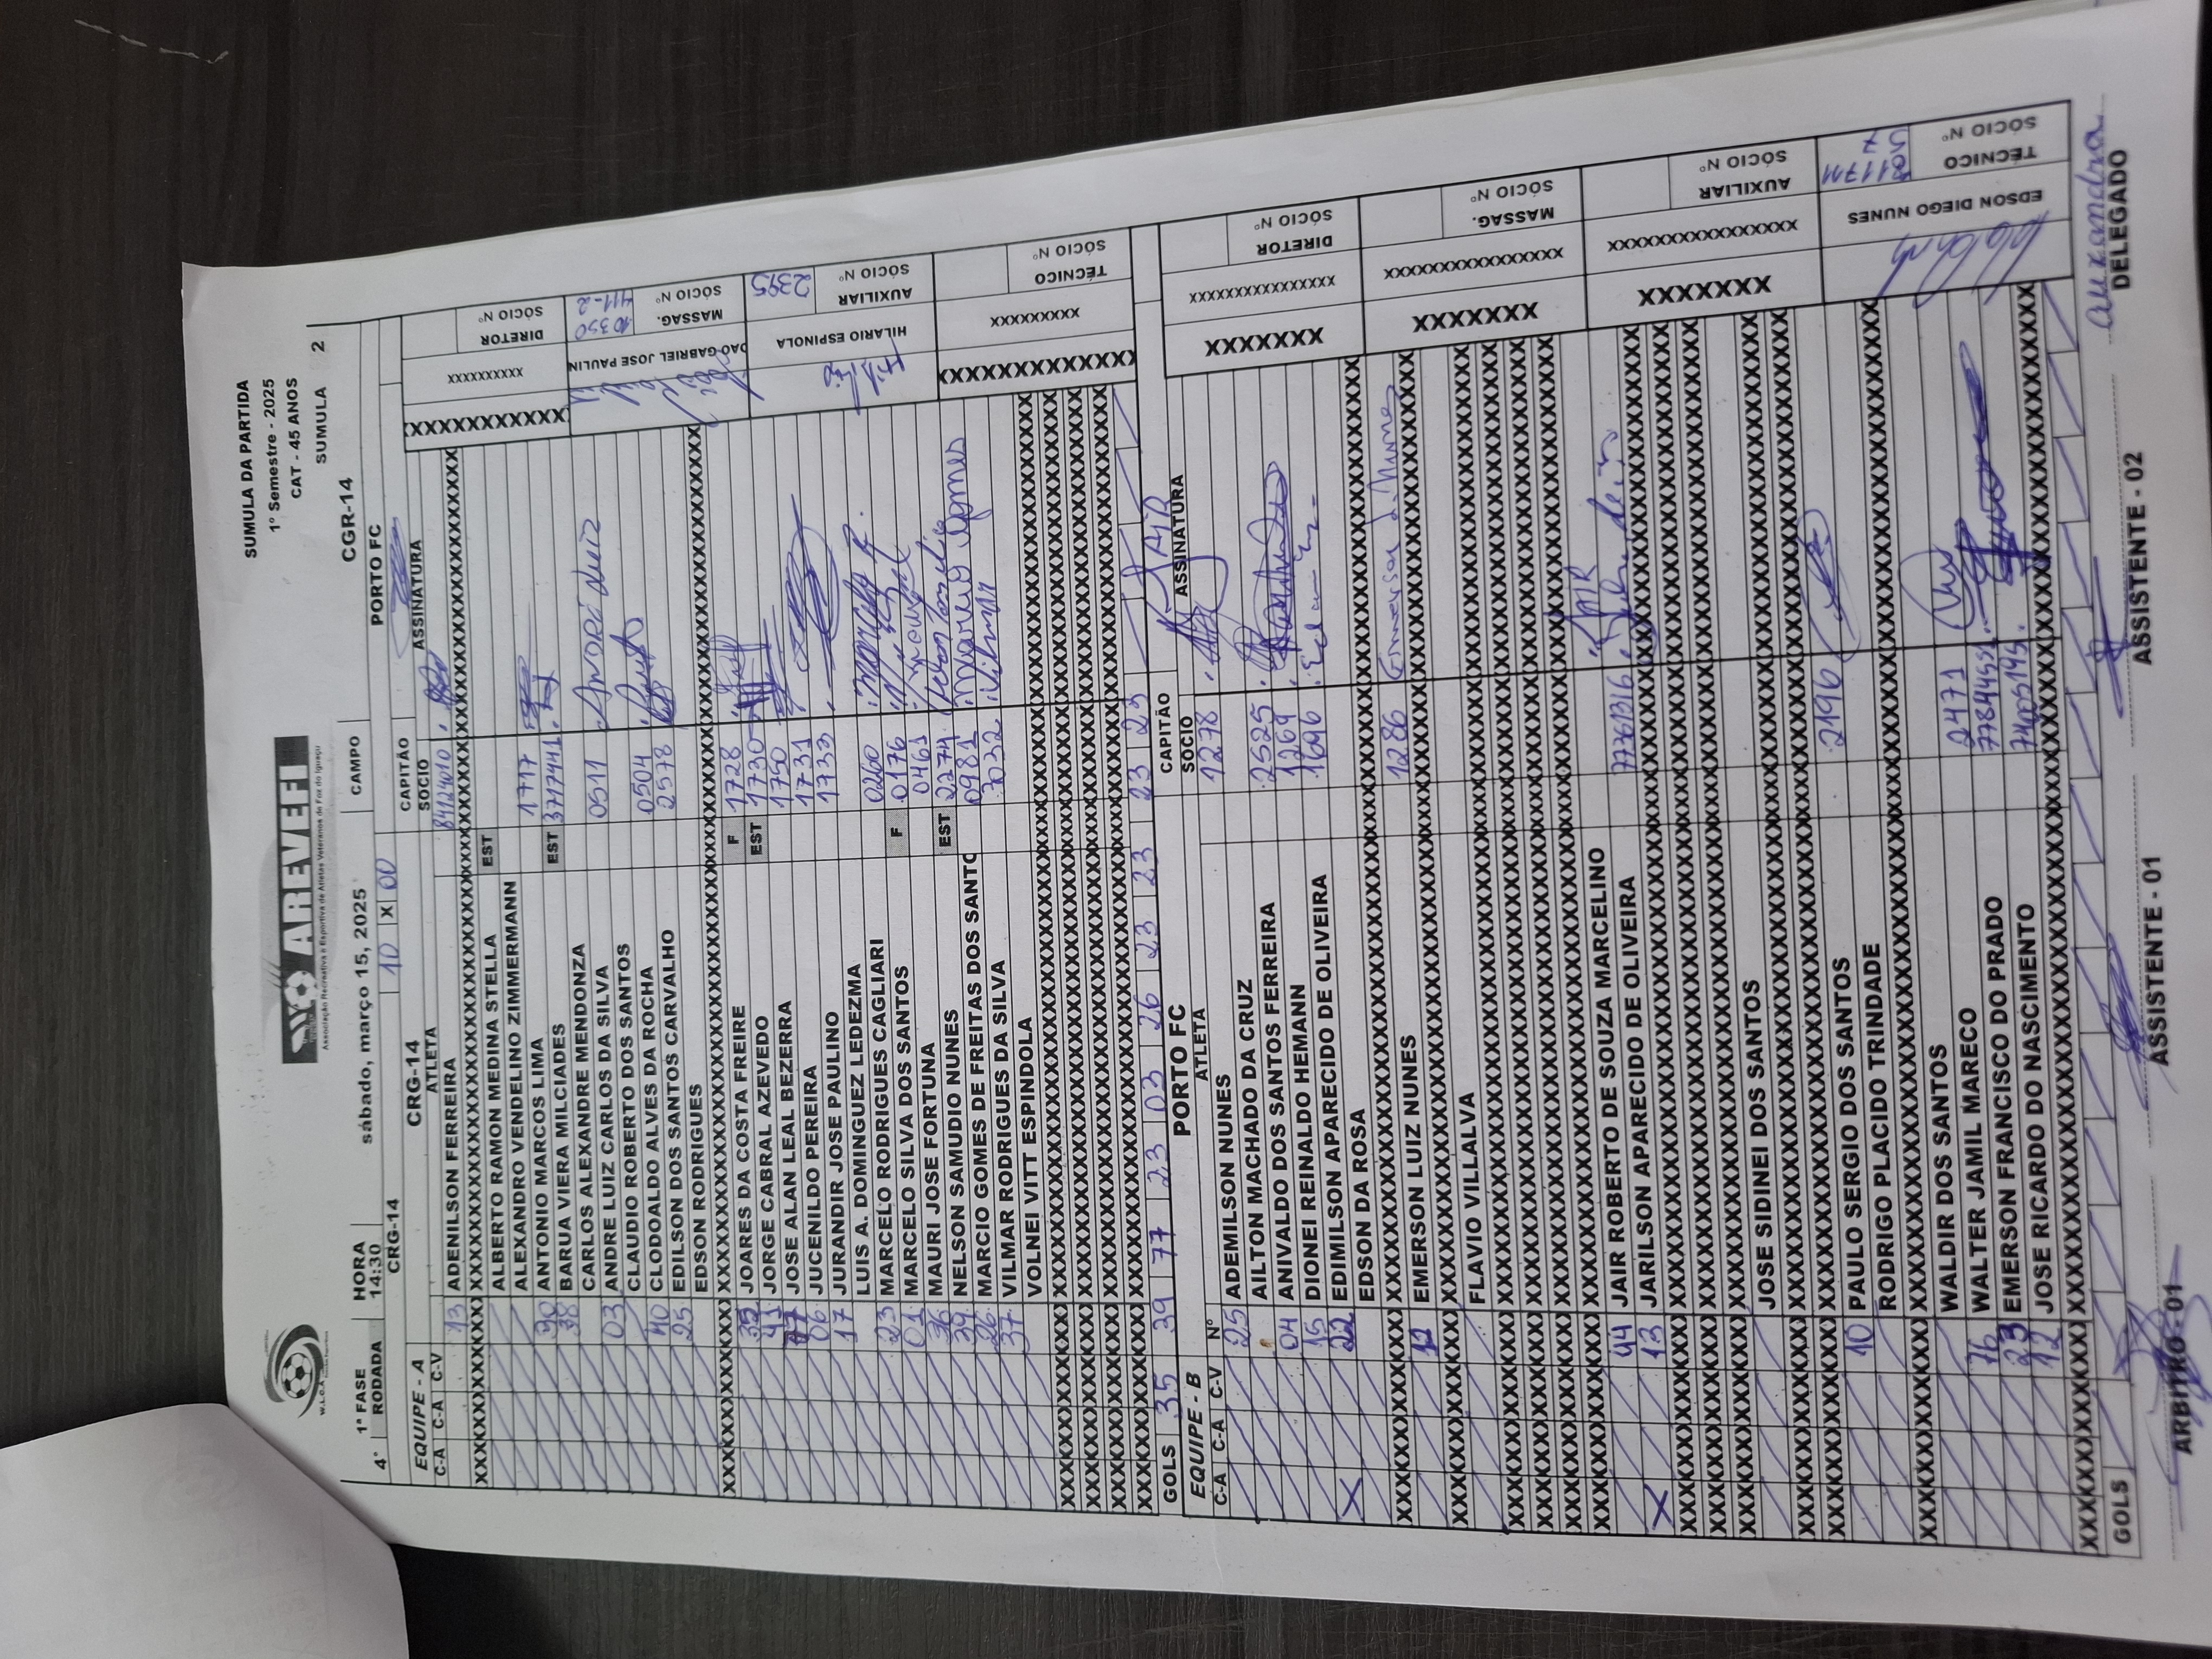 W.L.O.A
AREVEFI
Associação Recreativa e Esportiva de Atletas Veteranos de Foz do Iguaçu
SUMULA DA PARTIDA
1º Semestre - 2025
CAT - 45 ANOS
SUMULA 2
1ª FASE HORA sábado, março 15, 2025 CAMPO CGR-14
4ª RODADA 14:30
CRG-14 10 X 00 PORTO FC
EQUIPE - A CRG-14 CAPITÃO
C-A C-A C-V ATLETA SOCIO ASSINATURA
13 ADENILSON FERREIRA 84124010
ALBERTO RAMON MEDINA STELLA EST
ALEXANDRO VENDELINO ZIMMERMANN
90 ANTONIO MARCOS LIMA 1717
38 BARUA VIERA MILCIADES EST 3717441
CARLOS ALEXANDRE MENDONZA
03 ANDRE LUIZ CARLOS DA SILVA 0511 André Luiz
CLAUDIO ROBERTO DOS SANTOS
40 CLODOALDO ALVES DA ROCHA 0504
25 EDILSON DOS SANTOS CARVALHO 2578
EDSON RODRIGUES
35 JOARES DA COSTA FREIRE F 1728
41 JORGE CABRAL AZEVEDO EST 1730
77 JOSE ALAN LEAL BEZERRA 1750
06 JUCENILDO PEREIRA 1731
17 JURANDIR JOSE PAULINO 1733
LUIS A. DOMINGUEZ LEDEZMA
23 MARCELO RODRIGUES CAGLIARI 0260
01 MARCELO SILVA DOS SANTOS F 0176
36 MAURI JOSE FORTUNA 0461
39 NELSON SAMUDIO NUNES EST 2274
26 MARCIO GOMES DE FREITAS DOS SANTO 0981 Marcio Gomes
37 VILMAR RODRIGUES DA SILVA 3032 Vilmar
VOLNEI VITT ESPINDOLA
GOLS 35 39 77 23 03 26 23 23 23 23
DIRETOR
SÓCIO Nº
JOAO GABRIEL JOSE PAULIN
MASSAG. 10350
SÓCIO Nº 411-2
HILARIO ESPINOLA
AUXILIAR
SÓCIO Nº 2395
TÉCNICO
SÓCIO Nº
EQUIPE - B PORTO FC CAPITÃO JAIR
C-A C-A C-V Nº ATLETA SOCIO ASSINATURA
25 ADEMILSON NUNES 1278
AILTON MACHADO DA CRUZ
04 ANIVALDO DOS SANTOS FERREIRA 2525
15 DIONEI REINALDO HEMANN 1269
X 22 EDIMILSON APARECIDO DE OLIVEIRA 1696
EDSON DA ROSA
12 EMERSON LUIZ NUNES 1286 Emerson L. Nunes
FLAVIO VILLALVA
44 JAIR ROBERTO DE SOUZA MARCELINO JAIR
X 13 JARILSON APARECIDO DE OLIVEIRA 77761316
JOSE SIDINEI DOS SANTOS
10 PAULO SERGIO DOS SANTOS 2196
RODRIGO PLACIDO TRINDADE
WALDIR DOS SANTOS
76 WALTER JAMIL MARECO 2471
23 EMERSON FRANCISCO DO PRADO
12 JOSE RICARDO DO NASCIMENTO
GOLS
DIRETOR
SÓCIO Nº
MASSAG.
SÓCIO Nº
AUXILIAR
SÓCIO Nº
EDSON DIEGO NUNES
TÉCNICO
SÓCIO Nº
ARBITRO - 01 ASSISTENTE - 01 ASSISTENTE - 02 DELEGADO